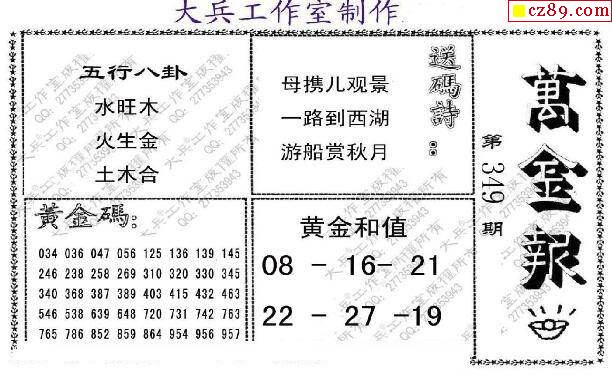 大兵工作室制作
cz89.com
萬金報
第349期
五行八卦
水旺木
火生金
土木合
送碼詩：
母携儿观景
一路到西湖
游船赏秋月
黃金碼：
034 036 047 056 125 136 139 145
246 238 258 269 310 320 330 345
340 368 387 389 403 415 432 463
546 538 639 648 720 731 742 763
765 786 852 859 864 954 956 957
黄金和值
08 - 16- 21
22 - 27 -19